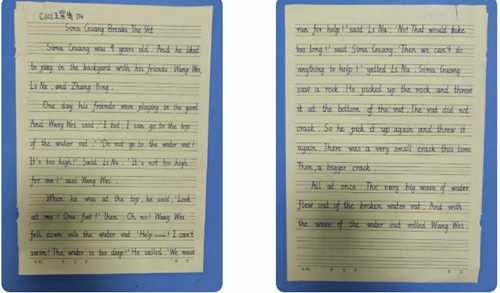 Sima Guang Breaks The Vat
Sima Guang was 9 years old. And he liked
to play in the backyard with his friends: Wang Wei,
Li Na, and Zhang Ying.
One day his friends were playing in the yard.
And Wang Wei said, "I bet, I can go to the top
of the water vat." "Do not go to the water vat!
It's too high!" Said Li Na. "It's not too high
for me!" said Wang Wei.
When he was at the top, he said, "Look
at me! One foot!" then. Oh no! Wang Wei
fell down into the water vat. "Help! I can't
swim! The water is too deep!" He yelled. "We must
run for help!" said Li Na. "No! That would take
too long!" said Sima Guang. "Then we can't do
anything to help!" yelled Li Na. Sima Guang
saw a rock. He picked up the rock and threw
it at the bottom of the vat. The vat did not
crack. So he pick it up again and threw it
again. There was a very small crack this time.
Then, a bigger crack.
All at once. The very big wave of water
flew out of the broken water vat. And with
the wave of the water out rolled Wang Wei.